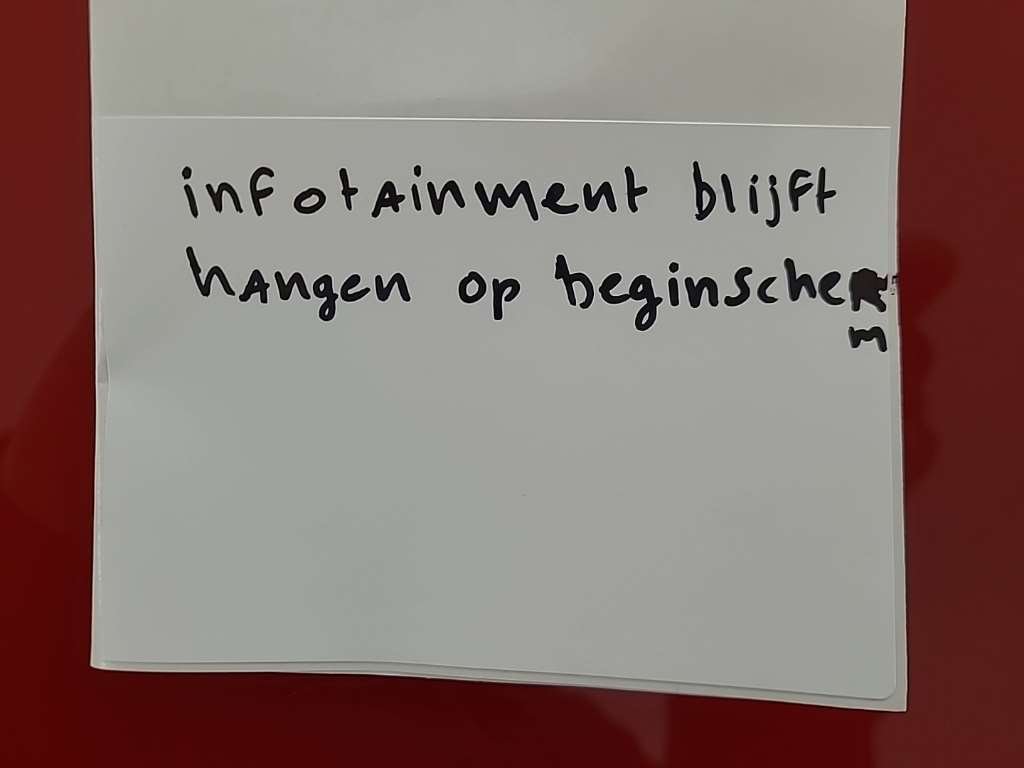 infotainment blijft
hangen op beginscher
m